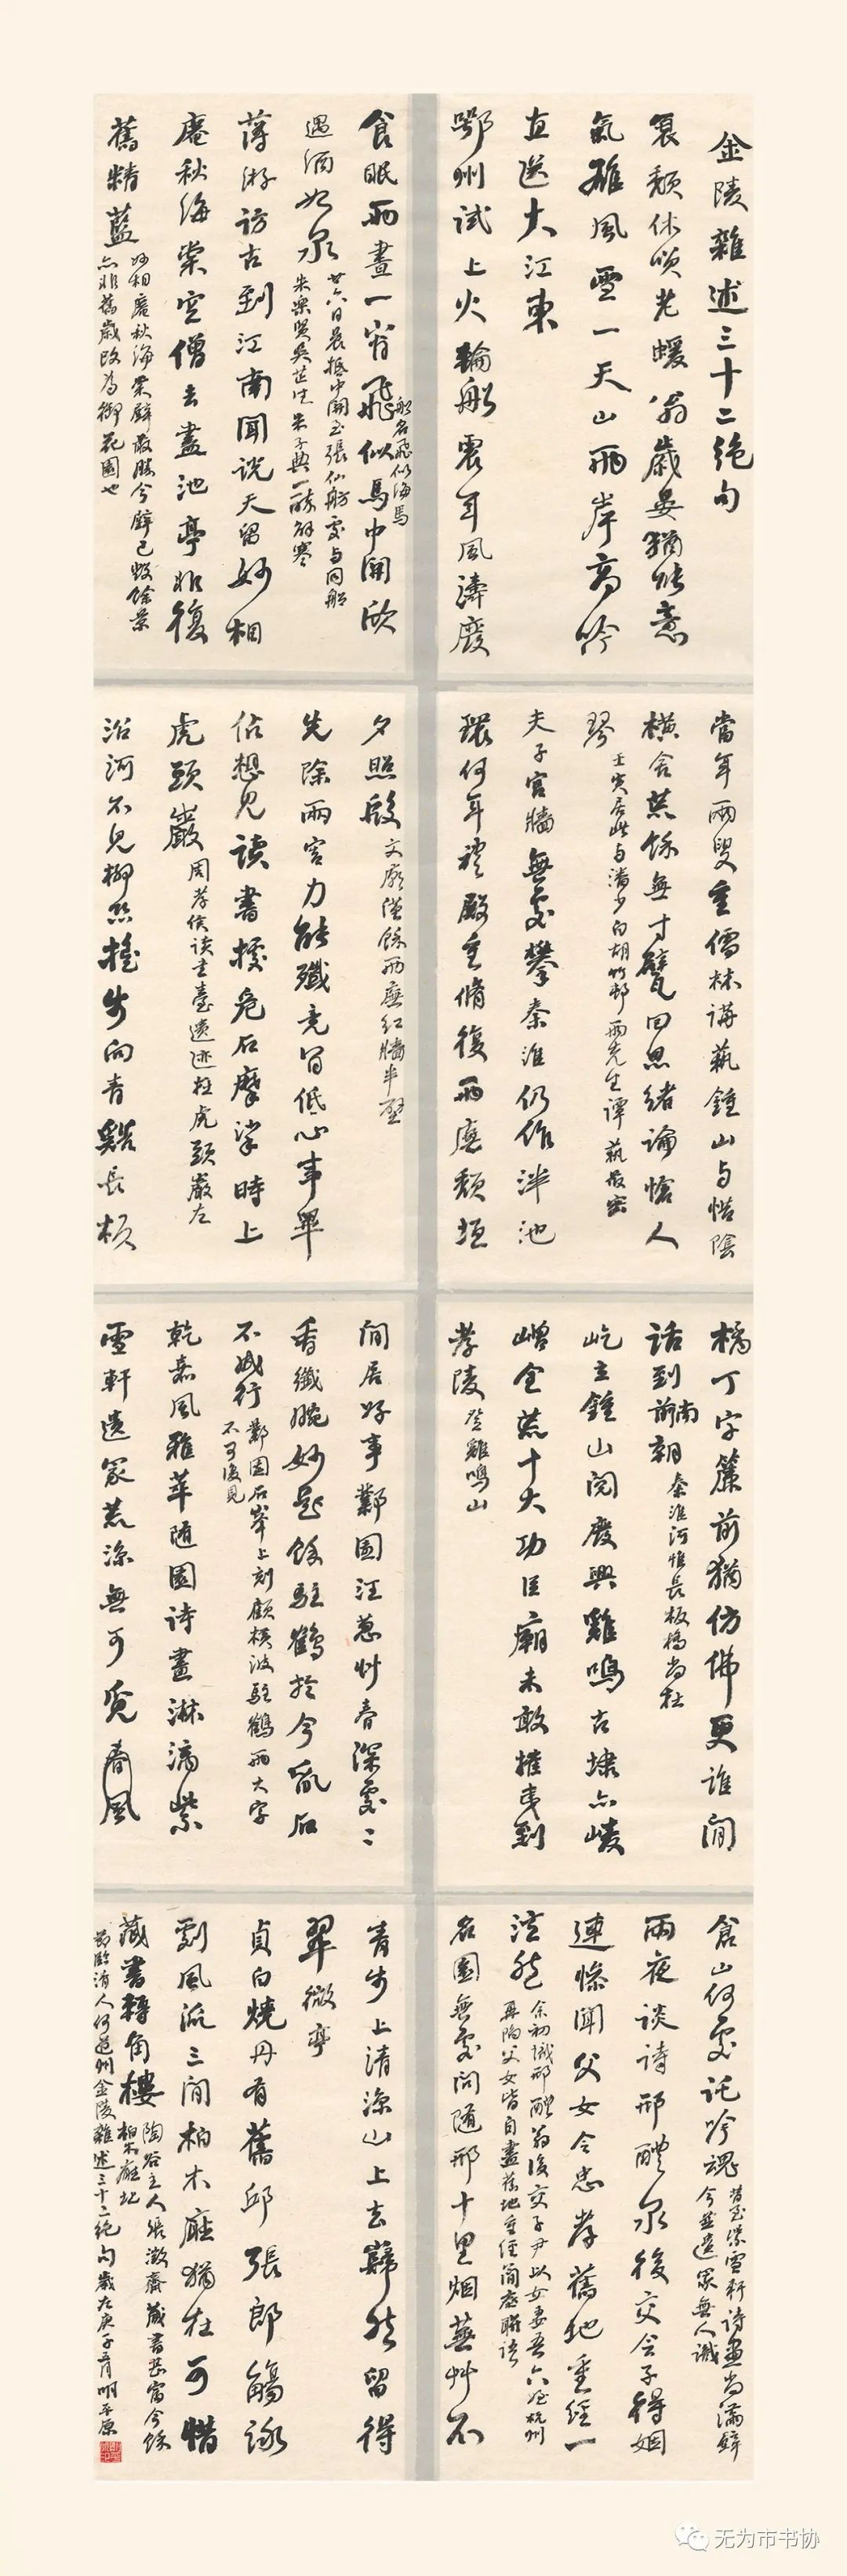 金陵雜述三十二絶句
衰顏休唤老蝯翁歲晏猶能意
氣雄風雪一天山兩岸高吟
直送大江東
鄂州試上火輪船震耳風濤廢
食眠兩晝一宵飛似馬中關欣
船名飛似海馬
遇酒如泉
廿六日晨抵中關至張仙舫處与同船
朱樂賢吳芷生朱子典一醉解寒
薄游訪古到江南聞説天留妙相
庵秋海棠空僧去盡池亭非復
舊精藍
妙相庵秋海棠壁最勝今壁已毀餘景
亦非舊歲改為御花園也
當年兩叟重儒林講藝鍾山与惜陰
横舍荒餘無寸甓回思緒論愴人
琴
壬寅居此与潘少白胡竹邨兩先生譚藝最密
夫子宫牆無處攀秦淮仍作泮池
環何年禮殿重脩復兩廡頹垣
夕照殷
文廟僅餘兩廡紅牆半壁
先除兩害力能殲竟肯低心事畢
佔想見讀書援危石摩挲時上
虎頭巖
周孝侯读書臺遺迹在虎頭巖左
沿河不見柳絲摇步向青谿長板
橋丁字簾前猶仿佛更誰閒
話到南朝
前
秦淮河惟長板橋尚在
屹立鍾山閲廢興雞鳴古埭亦崚
嶒全荒十大功臣廟未敢摧夷到
孝陵
登雞鳴山
閒居好事鄰園汪蔥竹春深處〻
香纖腕妙題餘駐鶴於今亂石
不成行
鄰園石峯上刻顧横波駐鶴兩大字
不可復見
乾嘉風雅萃隨園詩畫淋漓紫
雪軒遺冢荒涼無可覓春風
倉山何處託吟魂
昔至紫雪軒詩畫尚滿壁
今並遺冢無人識
兩夜談詩邢醴泉後交令子得姻
連慘聞父女全忠孝舊地重經一
泫然
余初識邢醴翁後交子尹以女妻吾六侄杭州
再陷父女皆自盡舊地重經
名園無處問隨邢十里烟蕪艸不
青步上清涼山上去巋然留得
翠微亭
貞白燒丹有舊邱張郎觴詠
劇風流三間柏木廳猶在可惜
藏書轉角樓
陶谷主人張澂齋藏書甚富今餘
柏木廳圮
節臨洧人何道州金陵雜述三十二絶句歲在庚子五月明平原
无为市书协